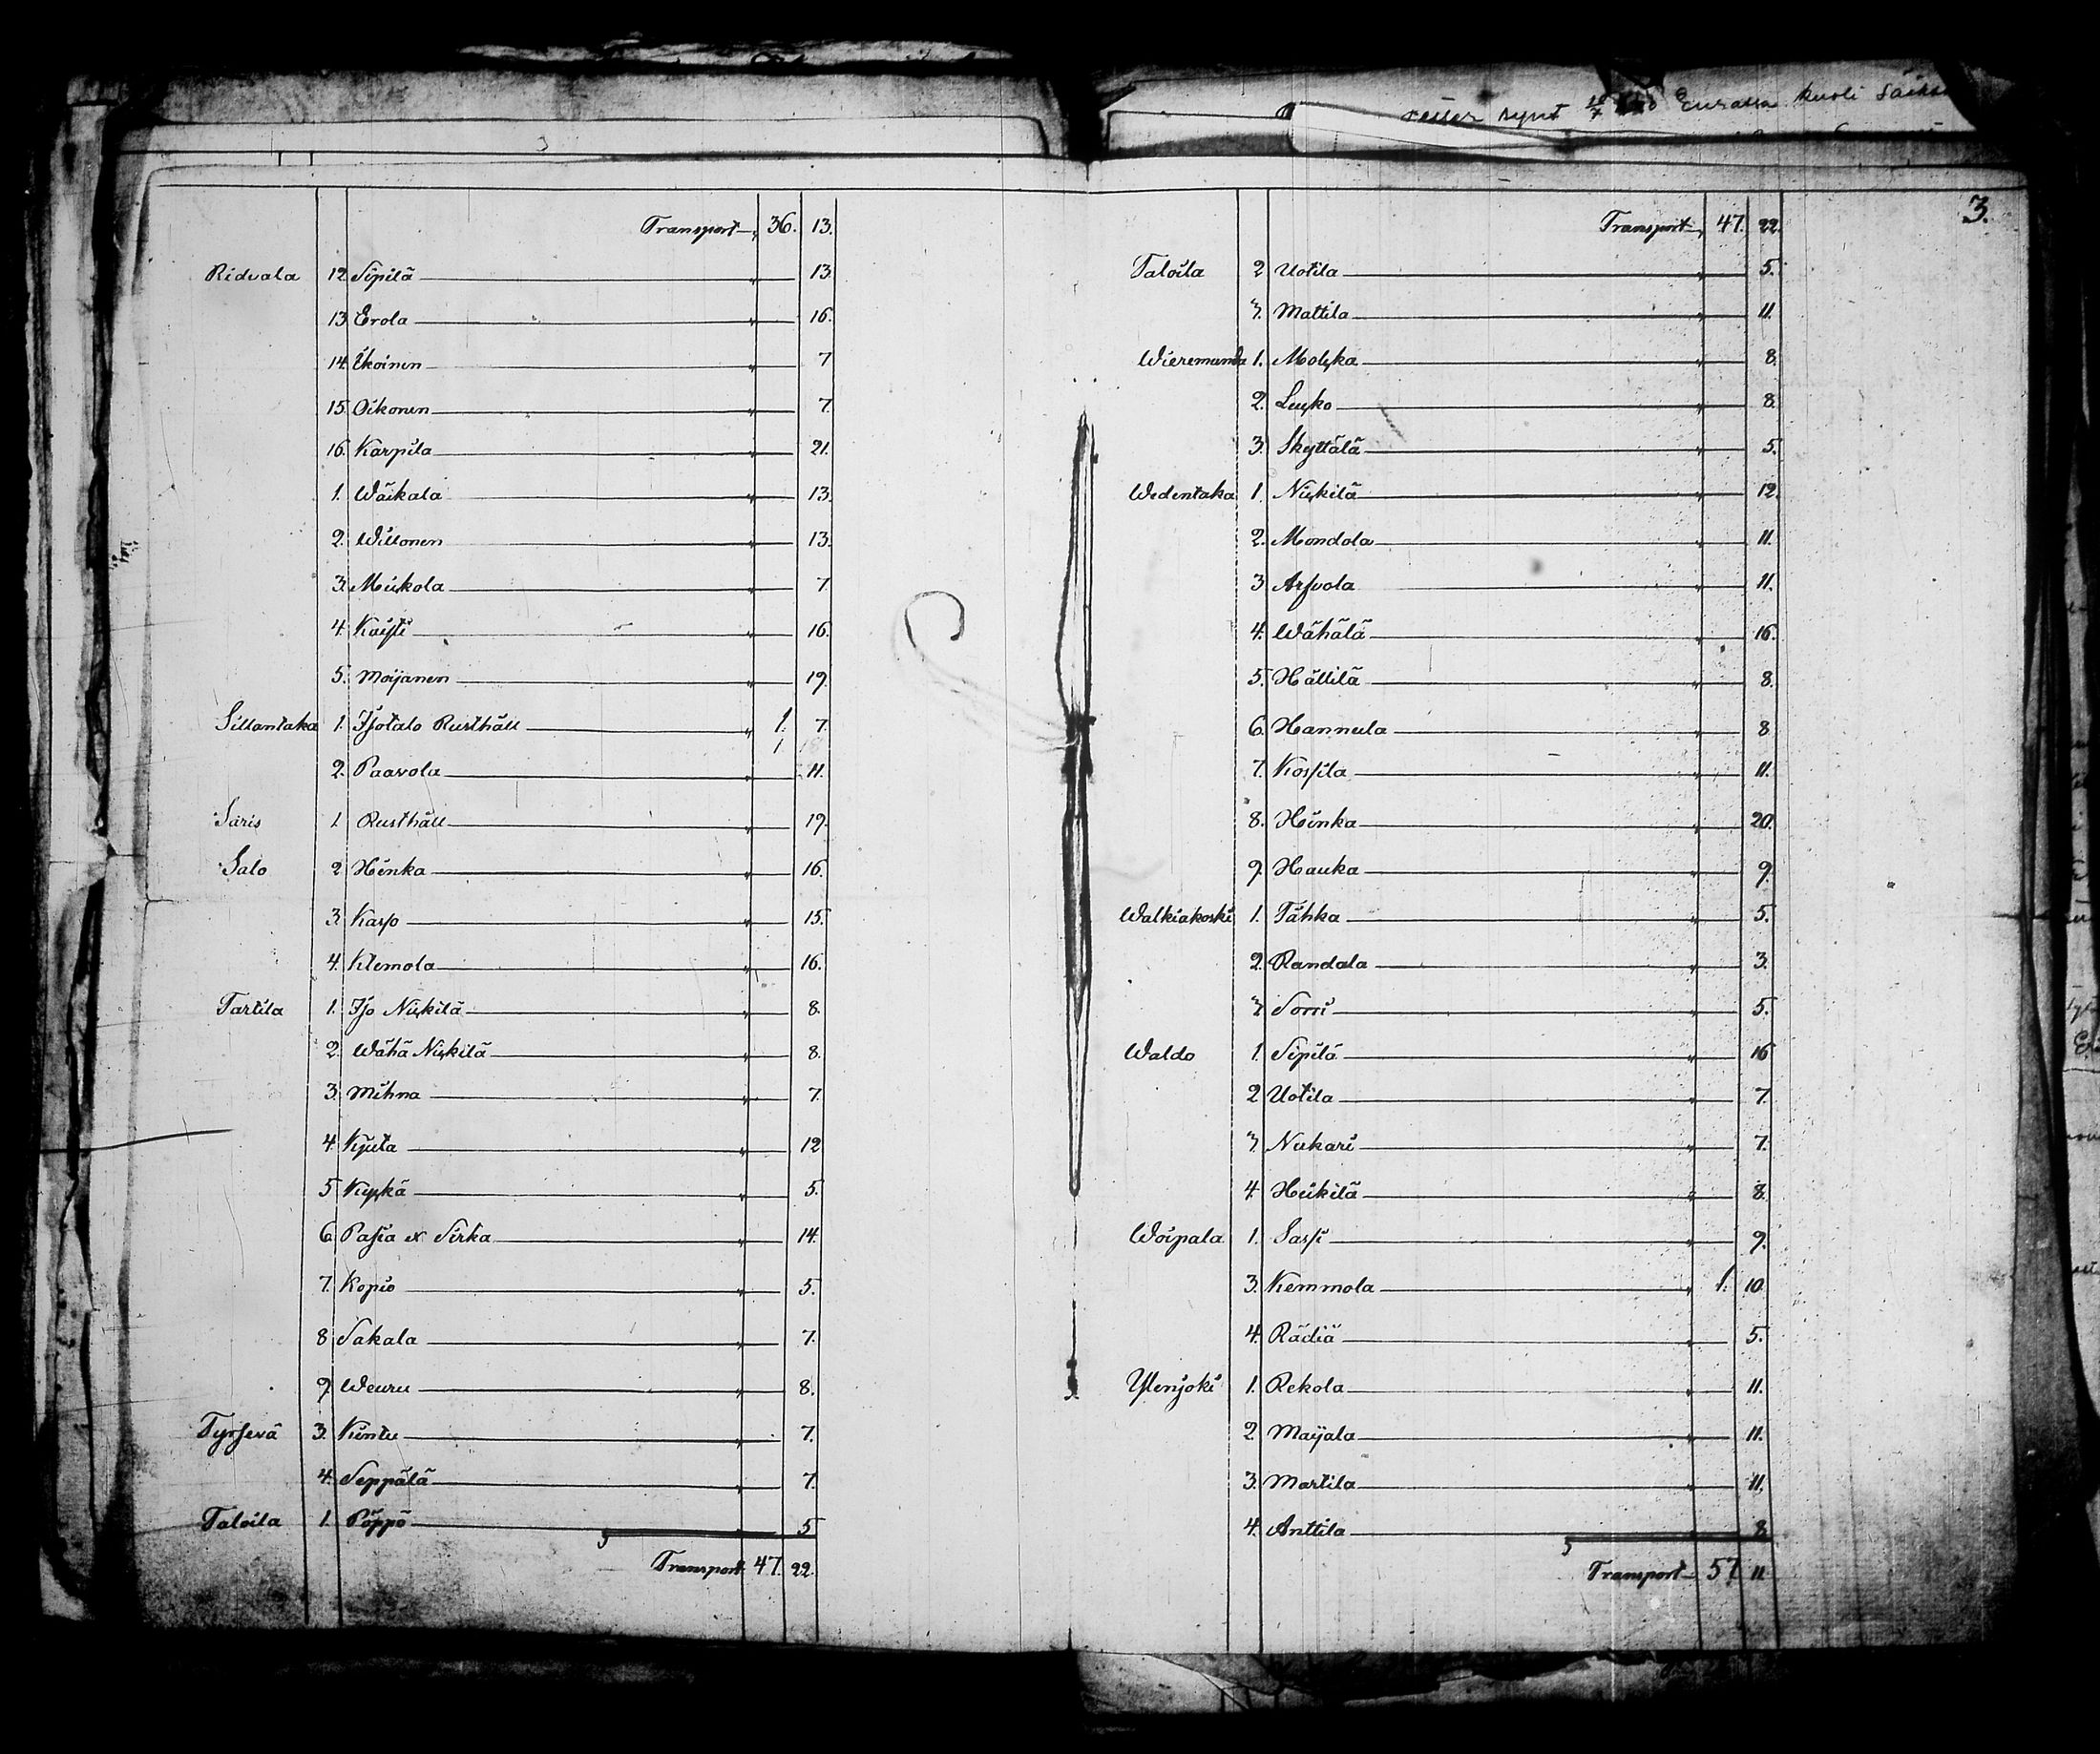 3
Transport 36. 13.
Ridvala 12 Sipilä " 13.
13 Erola " 16.
14. Ikoinen " 7
15. Oikonen " 7.
16. Karpila " 21.
1. Waikala " 13.
2. Willonen " 13.
3. Miekola " 7.
4. Kaisti " 16.
5. Moijanen " 19.
Sillantaka 1. Isotalo Rusthåll " 1. 7.
1.
2. Paavola " 11.
Saris 1. Rusthåll " 19.
Salo 2 Hinka " 16.
3. Kaso " 15.
4. Klemola " 16.
Tartila 1. Iso Niskilä " 8.
2. Wähä Niskilä " 8.
3. Mihna " 7.
4. Kjuta " 12
5 Kyskä " 5.
6 Pasia & Sirka " 14.
7. Kopio " 5.
8 Sakala " 7.
9. Weuru " 8.
Tyrsevä 3. Kintu " 7.
4. Seppälä " 7.
Taloila 1. Pöppö " 5
Transport 47. 22.
Eurassa kuoli
3.
Transport 47. 22.
Taloila 2 Uotila " 5.
3. Mattila " 11.
Wieremanda 1. Moiska " 8.
2. Lusko " 8.
3. Skyttälä " 5.
Wedentaka 1. Niskilä " 12.
2. Mondola " 11.
3 Arfvola " 11.
4. Wähälä " 16.
5. Hällilä " 8.
6. Hannula " 8
7. Kossila " 11.
8. Hinka " 20.
9. Hauka " 9.
Walkiakoski 1. Tähka " 5.
2. Randala " 3.
3 Sorri " 5.
Waldo 1. Sipilä " 16
2 Uotila " 7.
3 Nukari " 7.
4. Heikilä " 8.
Woipala 1. Sassi " 9.
3. Kemmola " 1. 10
4. Rädiä " 5.
Ylenjoki 1. Rekola " 11.
2. Maijala " 11.
3. Martila " 11.
4. Anttila " 8
Transport 57 11